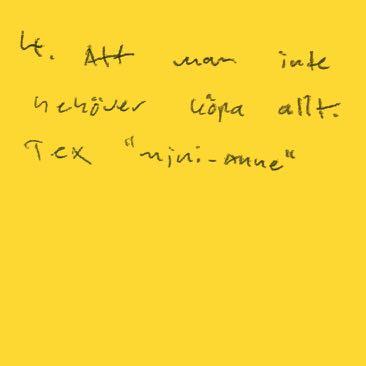 4. Att man inte
behöver köpa allt.
Tex "mini-Anne"